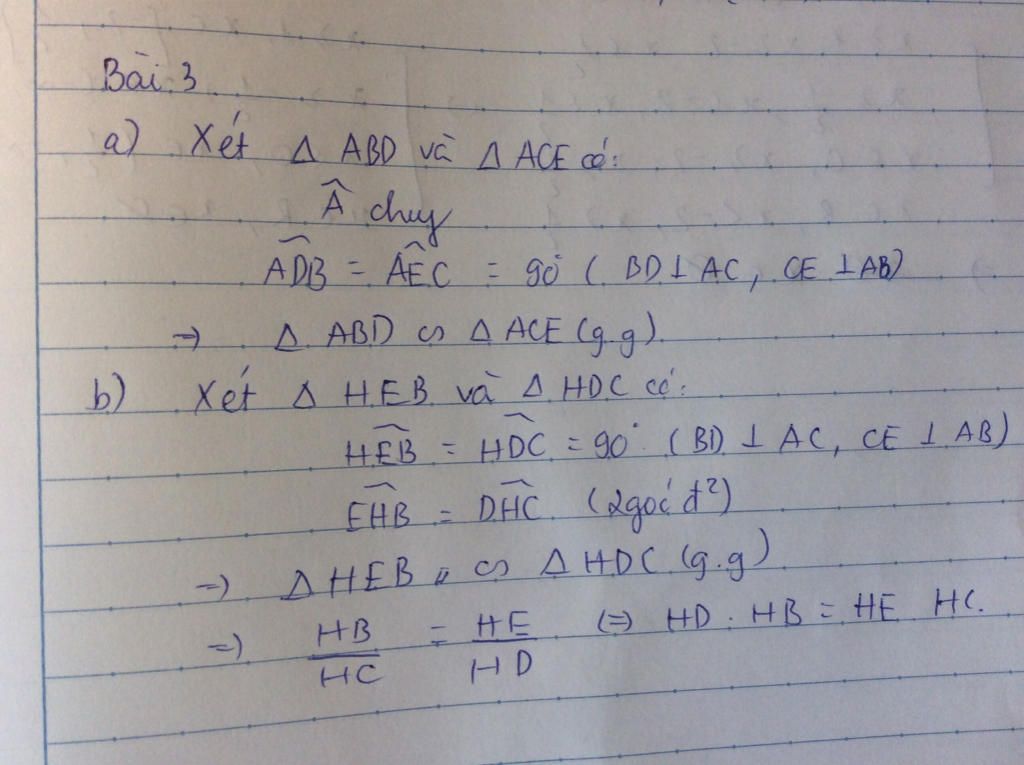 Bài 3
a) Xét Δ ABD và Δ ACE có:
Â chung
ADB = AEC = 90° ( BD ⊥ AC, CE ⊥ AB)
⇒ Δ ABD ∽ Δ ACE (g.g)
b) Xét Δ HEB và Δ HDC có:
HEB = HDC = 90° (BD ⊥ AC, CE ⊥ AB)
EHB = DHC (2 góc đ²)
⇒ Δ HEB ∽ Δ HDC (g.g)
⇒ HB/HC = HE/HD ⇔ HD . HB = HE HC.